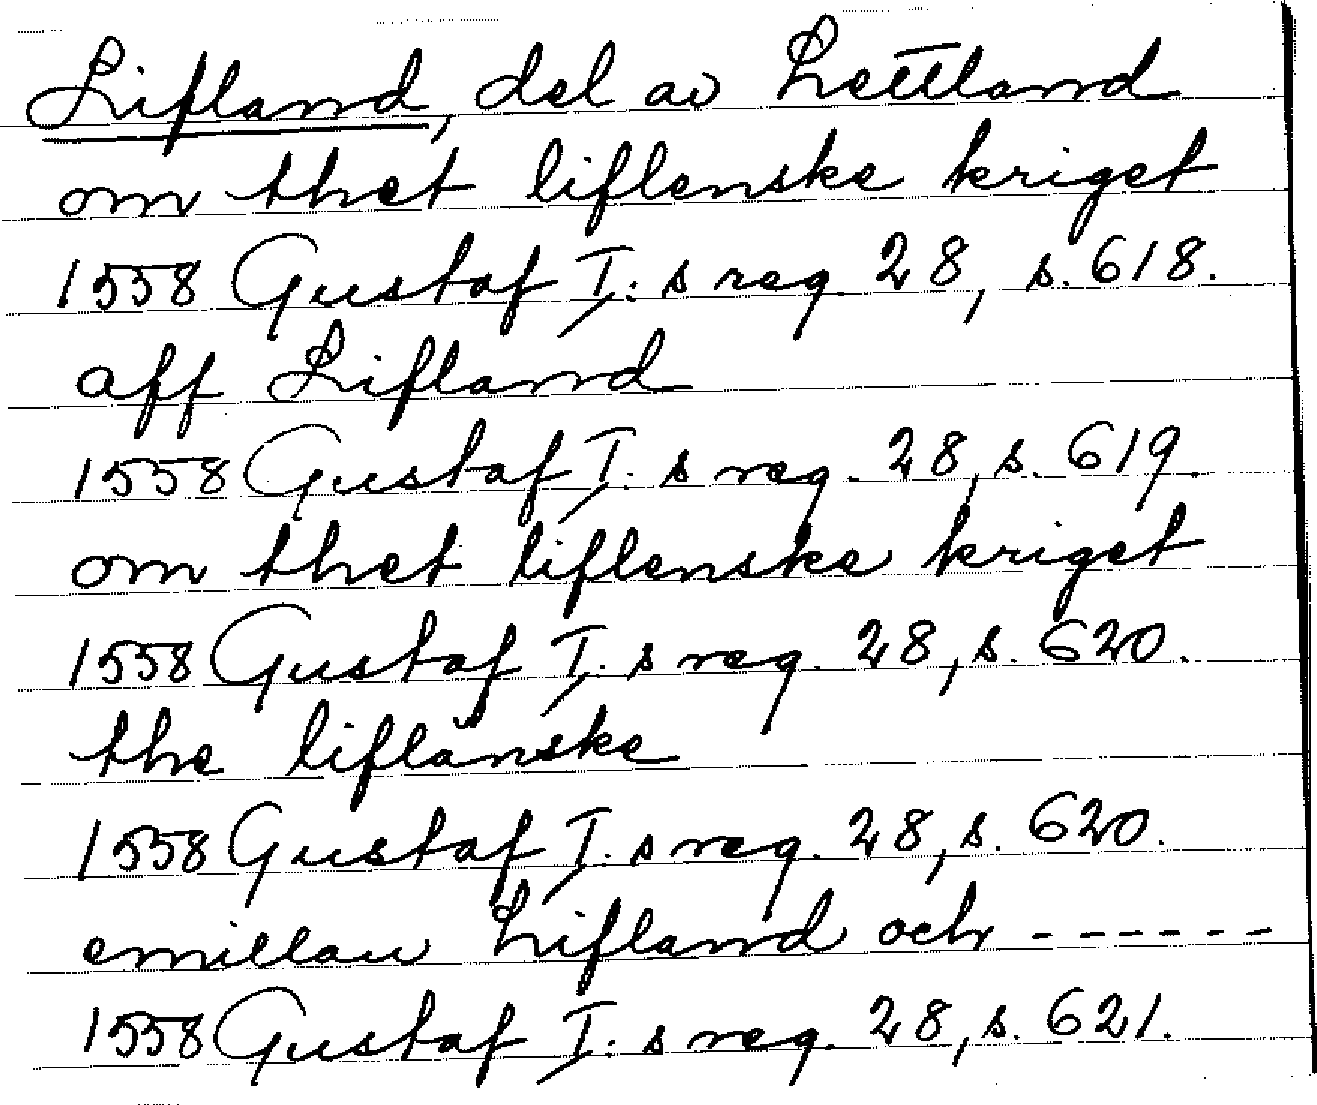 Lifland, del av Lettland
om thet liflenske kriget
1558 Gustaf I: s reg. 28, s. 618.
aff Lifland
1558 Gustaf I: s reg. 28, s. 619.
om thet liflenske kriget
1558 Gustaf I: s reg. 28, s. 620.
the liflänske
1558 Gustaf I: s reg. 28, s. 620.
emillan Lifland och ------
1558 Gustaf I: s reg. 28, s. 621.